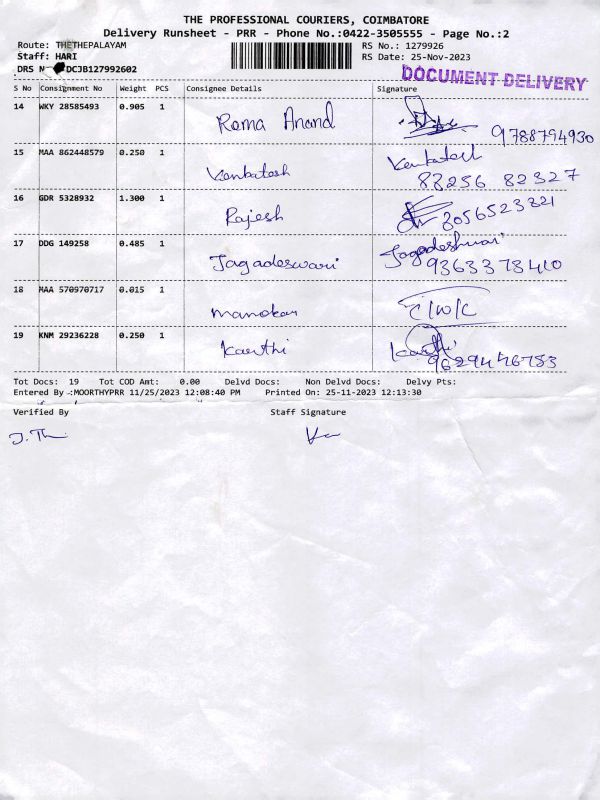 THE PROFESSIONAL COURIERS, COIMBATORE
Delivery Runsheet - PRR - Phone No.:0422-3505555 - Page No.:2
Route: THETHEPALAYAM RS No.: 1279926
Staff: HARI RS Date: 25-Nov-2023
DRS N DCJB127992602 DOCUMENT DELIVERY
S No Consignment No Weight PCS Consignee Details Signature
14 WKY 28585493 0.905 1 Roma Anand 9788794930
15 MAA 862448579 0.250 1 Venkatesh Venkatesh
88256 82327
16 GDR 5328932 1.300 1 Rajesh 8056523821
17 DDG 149258 0.485 1 Jagadeswari Jagadeshwari
9363378410
18 MAA 570970717 0.015 1 Manokar C/W/C
19 KNM 29236228 0.250 1 Karthi Karthi
9629446783
Tot Docs: 19 Tot COD Amt: 0.00 Delvd Docs: Non Delvd Docs: Delvy Pts:
Entered By :MOORTHYPRR 11/25/2023 12:08:40 PM Printed On: 25-11-2023 12:13:30
Verified By Staff Signature